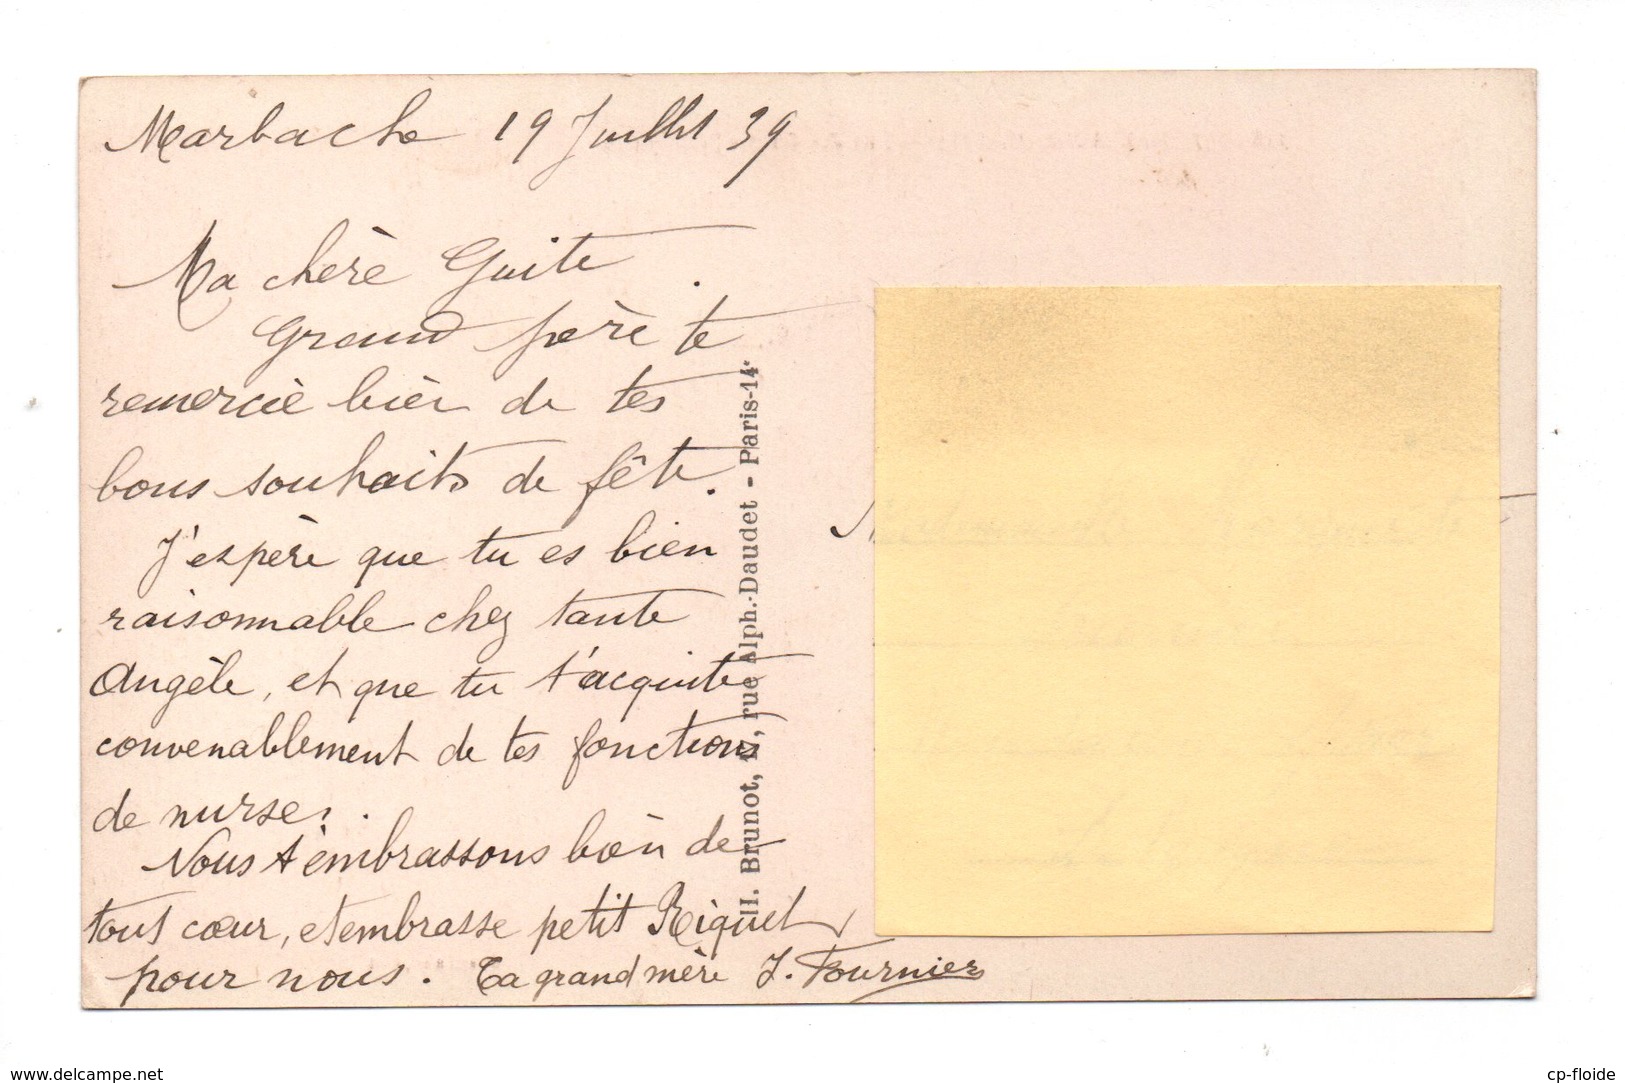 Marbache 19 Juillet 39
Ma chère Guite.
Grand père te
remercie bien de tes
bons souhaits de fête.
J'espère que tu es bien
raisonnable chez tante
Angèle, et que tu t'acquitte
convenablement de tes fonctions
de nurse.
Nous t'embrassons bien de
tout cœur, et embrasse petit Riquet
pour nous. Ta grand mère J. Fournier
H. Brunot, 17, rue Alph.-Daudet - Paris-14e
www.delcampe.net
cp-floide